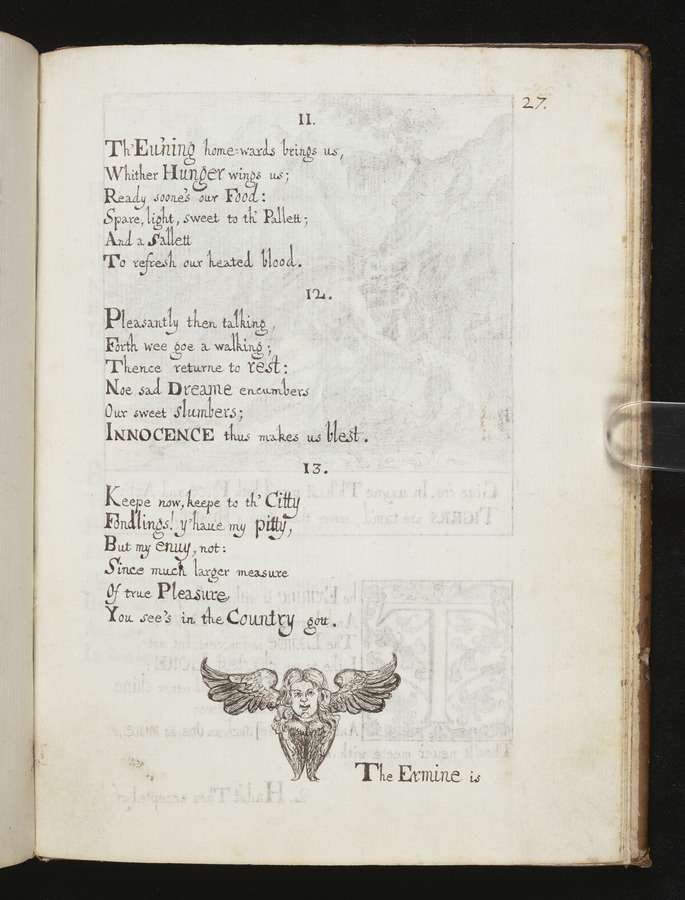 27.
11.
Th'Eu'ning home=wards brings us,
Whither Hunger wings us;
Ready soone's our Food:
Spare, light, sweet to th' Pallett;
And a Sallett
To refresh our heated blood.
12.
Pleasantly then talking,
Forth wee goe a walking;
Thence returne to rest:
Noe sad Dreame encumbers
Our sweet slumbers;
INNOCENCE thus makes us blest.
13.
Keepe now, keepe to th' Citty
Fondlings! y'haue my pitty,
But my enuy, not:
Since much larger measure
Of true Pleasure
You see's in the Country gott.
The Ermine is